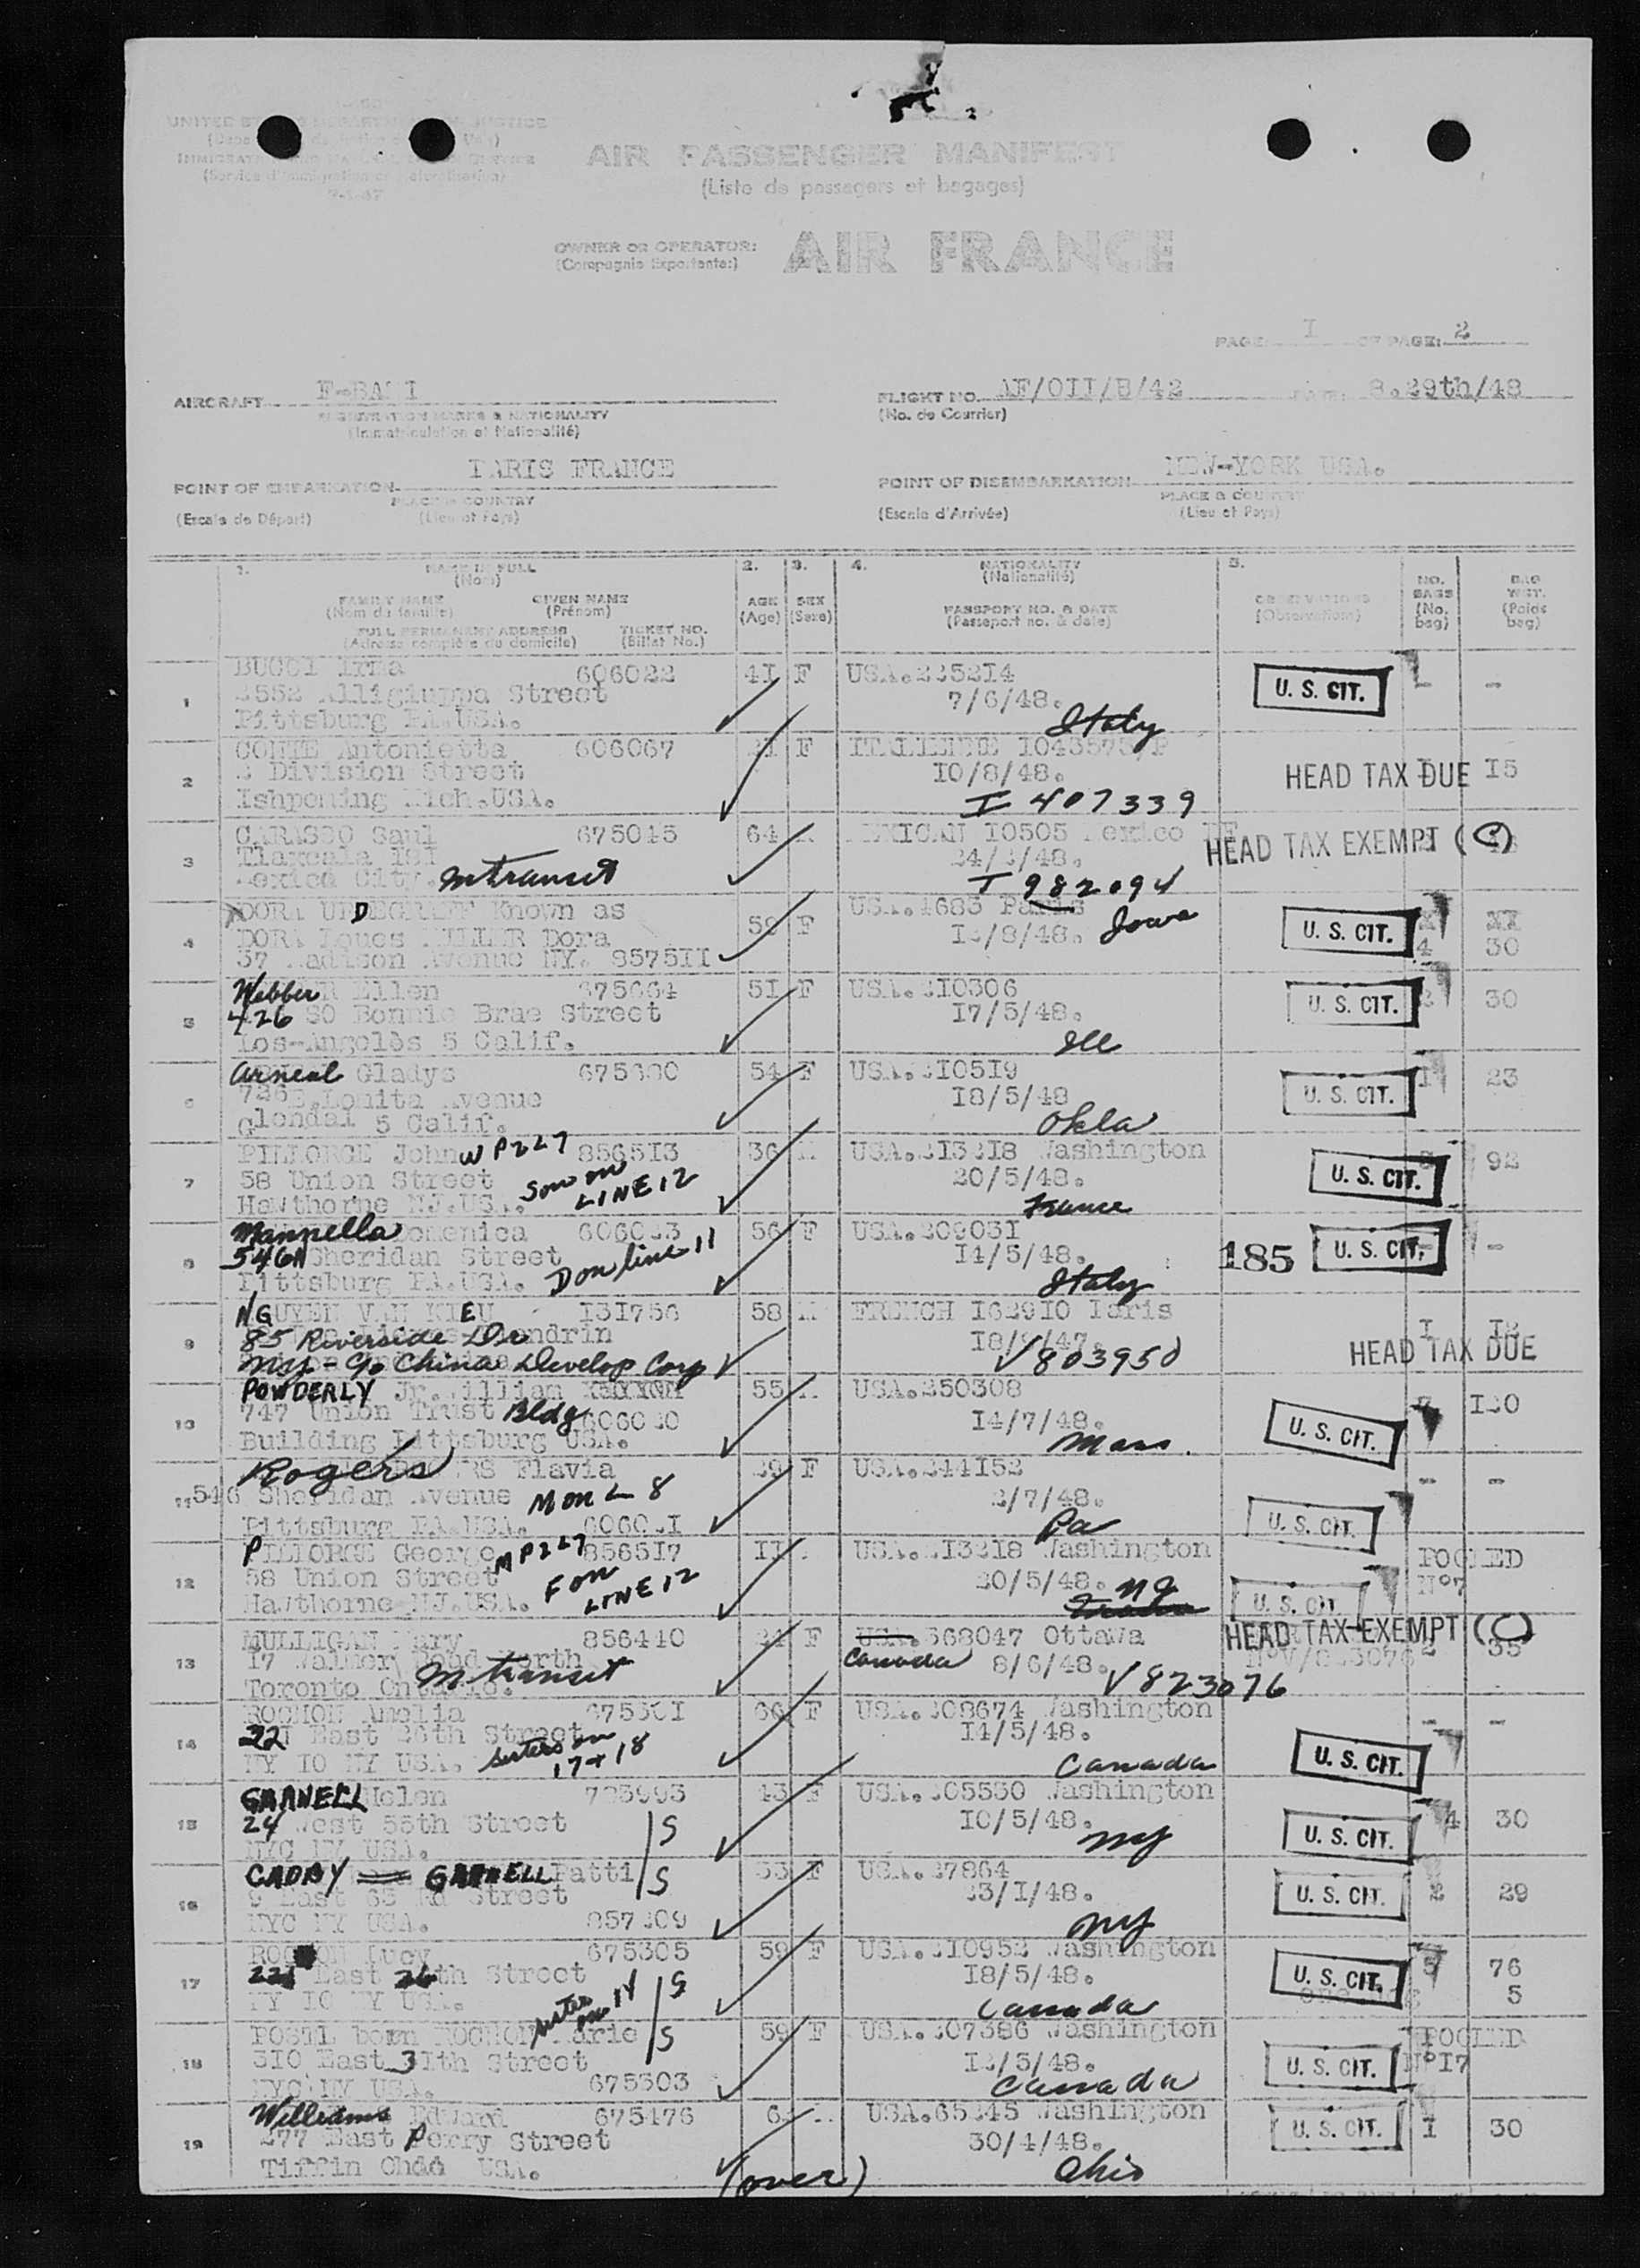 UNITED STATES DEPARTMENT OF JUSTICE
7-1-47
AIR PASSENGER MANIFEST
(Liste de passagers et bagages)
OWNER OR OPERATOR: AIR FRANCE
(Compagnie Exportante:)
PAGE: I OF PAGE: 2
AIRCRAFT
REGISTRATION MARKS & NATIONALITY
(Immatriculation et Nationalité)
FLIGHT NO. AF/OII/B/42 8.29th/48
(No. de Courrier)
POINT OF EMBARKATION PARIS FRANCE
PLACE & COUNTRY
(Escale de Départ) (Lieu et Pays)
POINT OF DISEMBARKATION NEW-YORK USA.
PLACE & COUNTRY
(Escale d'Arrivée) (Lieu et Pays)
1. NAME IN FULL
(Nom)
FAMILY NAME GIVEN NAME
(Nom de famille) (Prénom)
FULL PERMANENT ADDRESS TICKET NO.
(Adresse complète du domicile) (Billet No.)
2. AGE
(Age)
3. SEX
(Sexe)
4. NATIONALITY
(Nationalité)
PASSPORT NO. & DATE
(Passeport no. & date)
5. OBSERVATIONS
(Observations)
NO. BAGS
(No. bag)
BAG WGT.
(Poids bag)
1 BUCCI Irma 606022 4I F USA.
Street 7/6/48. U. S. CIT. - -
Pittsburg PA.USA. Italy
2 CONTE Antonietta 606067 F ITALIENNE
Division Street 10/8/48. HEAD TAX DUE I5
Ishpeming Mich.USA. I 407339
3 CARASSO Saul 675045 64 MEXICAN I0505 Mexico
Tlaxcala HEAD TAX EXEMPT (C)
Mexico City. In transit I 982094
4 DORA UPDEGRAFF Known as 59 F USA. Paris
DORA MILLER Dora /8/48. Iowa U. S. CIT. 4 30
57 Madison Avenue NY. 8575II
5 Webber Ellen 675664 5I F USA.
426 SO Bonnie Brae Street I7/5/48. U. S. CIT. 30
Los-Angelès 5 Calif. Ill
6 Arneal Gladys F USA.
Lomita Avenue I8/5/48 U. S. CIT. 1 23
Glendal 5 Calif. Okla
7 PILLORGE John W P227 8565I3 36 USA. Washington
58 Union Street Son on 20/5/48. U. S. CIT. 92
Hawthorne NJ.US. LINE 12 France
8 Mannella Domenica 56 F USA.
546A Sheridan Street I4/5/48. 185 U. S. CIT. -
Pittsburg PA.USA. D on line 11 Italy
9 NGUYEN VAN KIEU I3I756 58 FRENCH I629I0 Paris I I2
85 Riverside Dr
NY - c/o China Develop Corp V 803950 HEAD TAX DUE
10 POWDERLY Jr. William 55 USA.250308
747 Union Trust Bldg I4/7/48. U. S. CIT. I20
Building Pittsburg USA. Mass.
11 Rogers Flavia 29 F USA.244I52
546 Sheridan Avenue M on L 8 2/7/48. - -
Pittsburg PA.USA. Pa U. S. CIT.
12 PILLORGE George M P227 8565I7 II USA. Washington POOLED
58 Union Street F on 20/5/48. NJ U. S. CIT. N°7
Hawthorne NJ.USA. LINE 12
13 MULLIGAN Mary 856440 F USA. 368047 Ottawa HEAD TAX EXEMPT (C)
I7 Walmer Road North Canada 8/6/48. 2 35
Toronto Ontario. In transit V 823076
14 ROCHON Amelia 66 F USA.208674 Washington
221 East 26th Street I4/5/48. - -
NY IO NY USA. Sisters on 17 + 18 Canada U. S. CIT.
15 GARNELL Helen 43 F USA.205550 Washington
24 West 55th Street S I0/5/48. U. S. CIT. 4 30
NYC NY USA. NY
16 CADBY GARNELL Patti S F USA.27864
9 East 63 Rd Street 23/I/48. U. S. CIT. 2 29
NYC NY USA. 857209 NY
17 ROCHON Lucy 675305 59 F USA.2I0952 Washington
221 East 26th Street S I8/5/48. U. S. CIT. 5 76
NY IO NY USA. Sister on 14 Canada 5
18 POSTL born ROCHON Marie S 59 F USA.207386 Washington POOLED
3I0 East 31th Street /5/48. U. S. CIT. N°I7
NYC NY USA. 675303 Canada
19 Williams Edward 675476 USA. Washington
277 East Perry Street 30/4/48. U. S. CIT. I 30
Tiffin USA. (over) Ohio